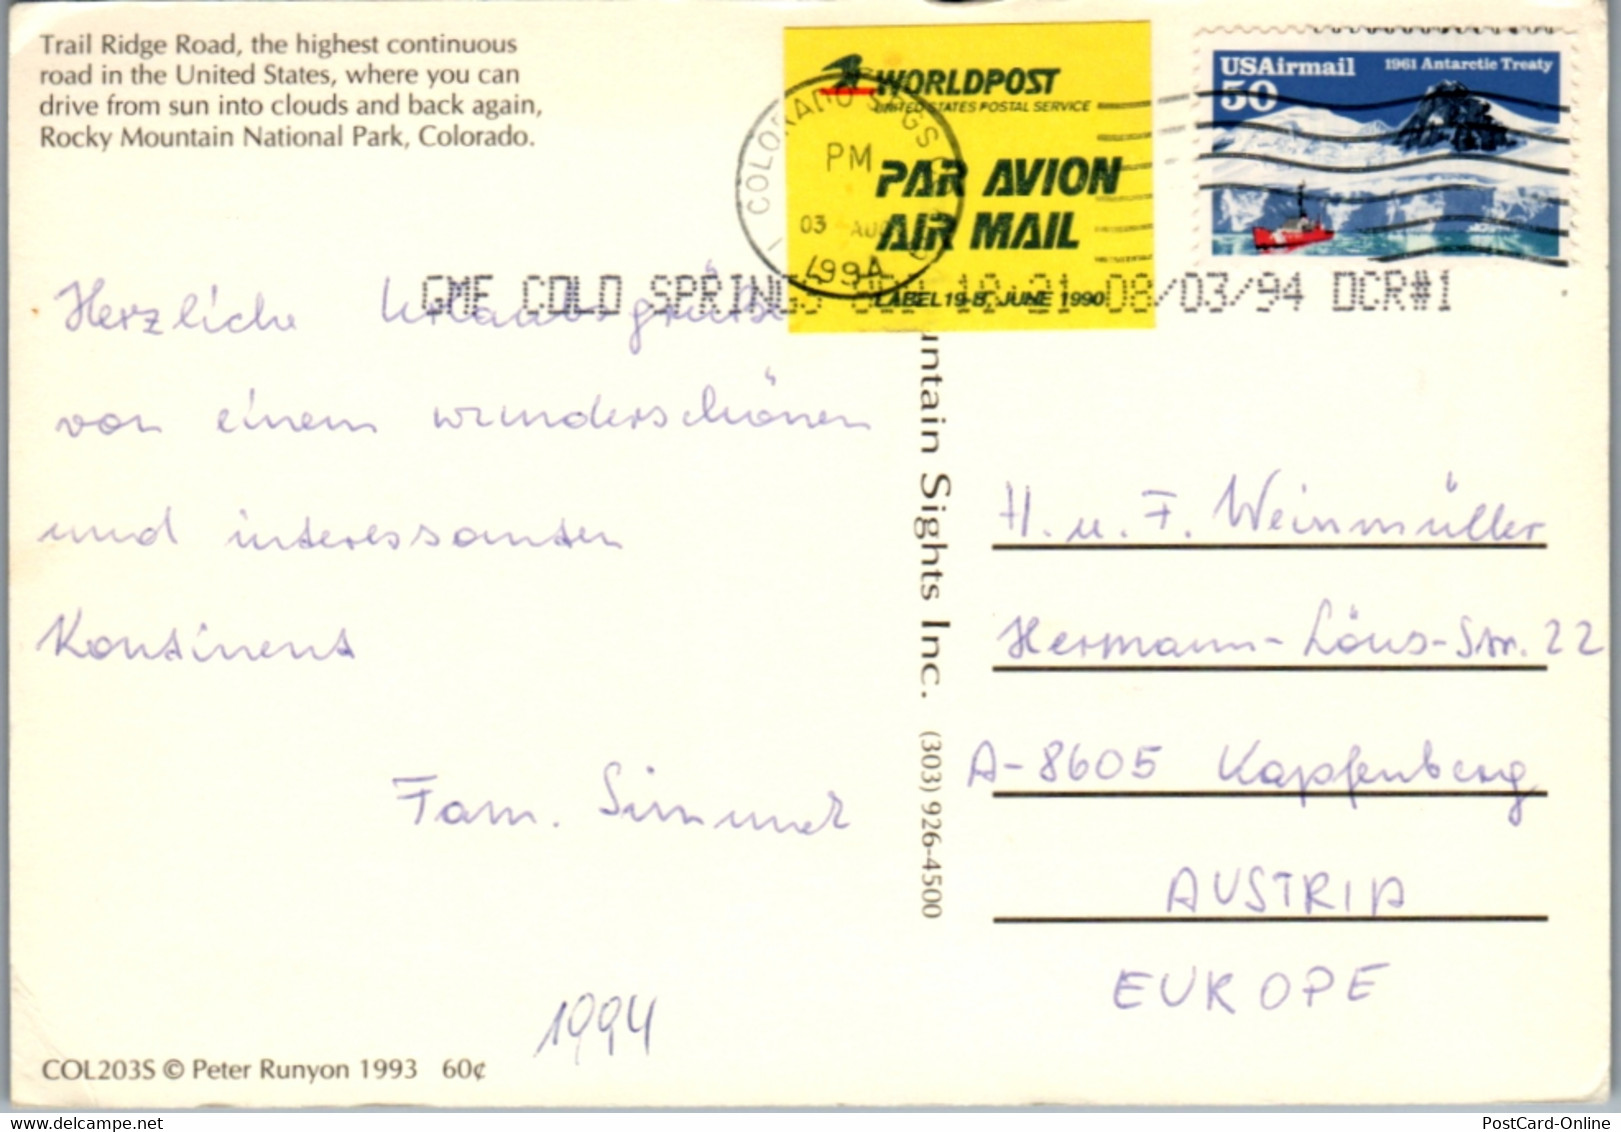 Trail Ridge Road, the highest continuous
road in the United States, where you can
drive from sun into clouds and back again,
Rocky Mountain National Park, Colorado.
WORLDPOST
UNITED STATES POSTAL SERVICE
PAR AVION
AIR MAIL
LABEL 19-B, JUNE 1990
COLORADO SPRINGS
PM
03 AUG
1994
USAirmail
50
1961 Antarctic Treaty
GMF COLO SPRINGS 08/03/94 OCR#1
Herzliche Urlaubsgrüße
von einem wunderschönen
und interessanten
Kontinent
Fam.
1994
untain Sights Inc. (303) 926-4500
H. u. F. Weinmüller
Hermann-Löns-Str. 22
A-8605 Kapfenberg
AUSTRIA
EUROPE
COL203S © Peter Runyon 1993 60¢
PostCard-Online